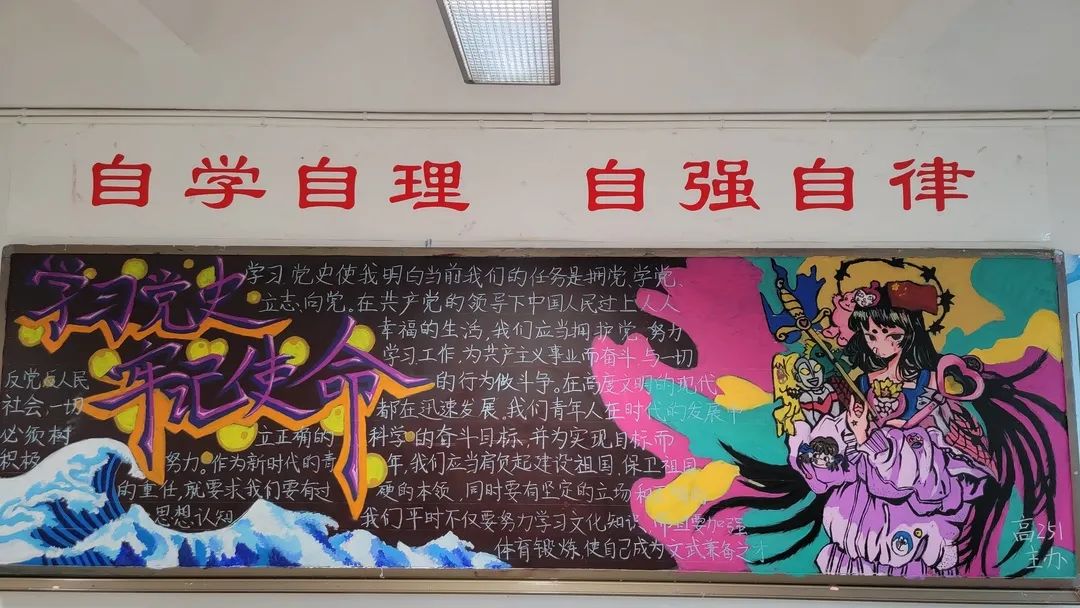 自学自理 自强自律
学习党史
牢记使命
学习党史使我明白当前我们的任务是拥党、学党、
立志、向党。在共产党的领导下中国人民过上人人
幸福的生活,我们应当拥护党,努力
学习工作,为共产主义事业而奋斗,与一切
反党反人民的行为做斗争。在高度文明的现代
社会,一切都在迅速发展,我们青年人在时代的发展中
必须树立正确的科学的奋斗目标,并为实现目标而
积极努力。作为新时代的青年,我们应当肩负起建设祖国,保卫祖国
的重任,就要求我们要有过硬的本领,同时要有坚定的立场和
思想认知 我们平时不仅要努力学习文化知识,而且要加强
体育锻炼,使自己成为文武兼备之才
高251
主办